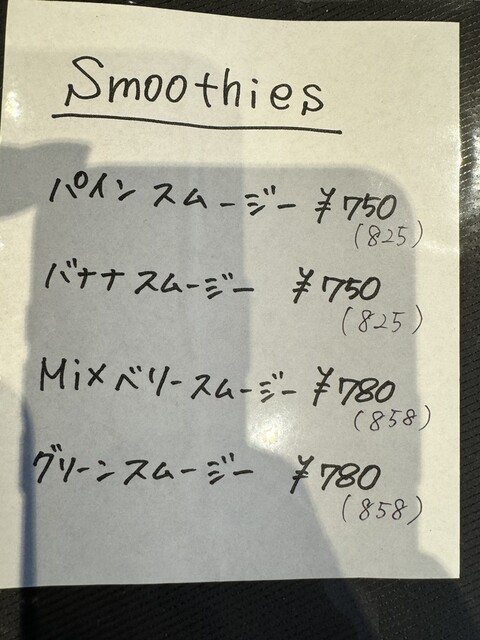 Smoothies
パインスムージー ¥750
(825)
バナナスムージー ¥750
(825)
Mixベリースムージー ¥780
(858)
グリーンスムージー ¥780
(858)